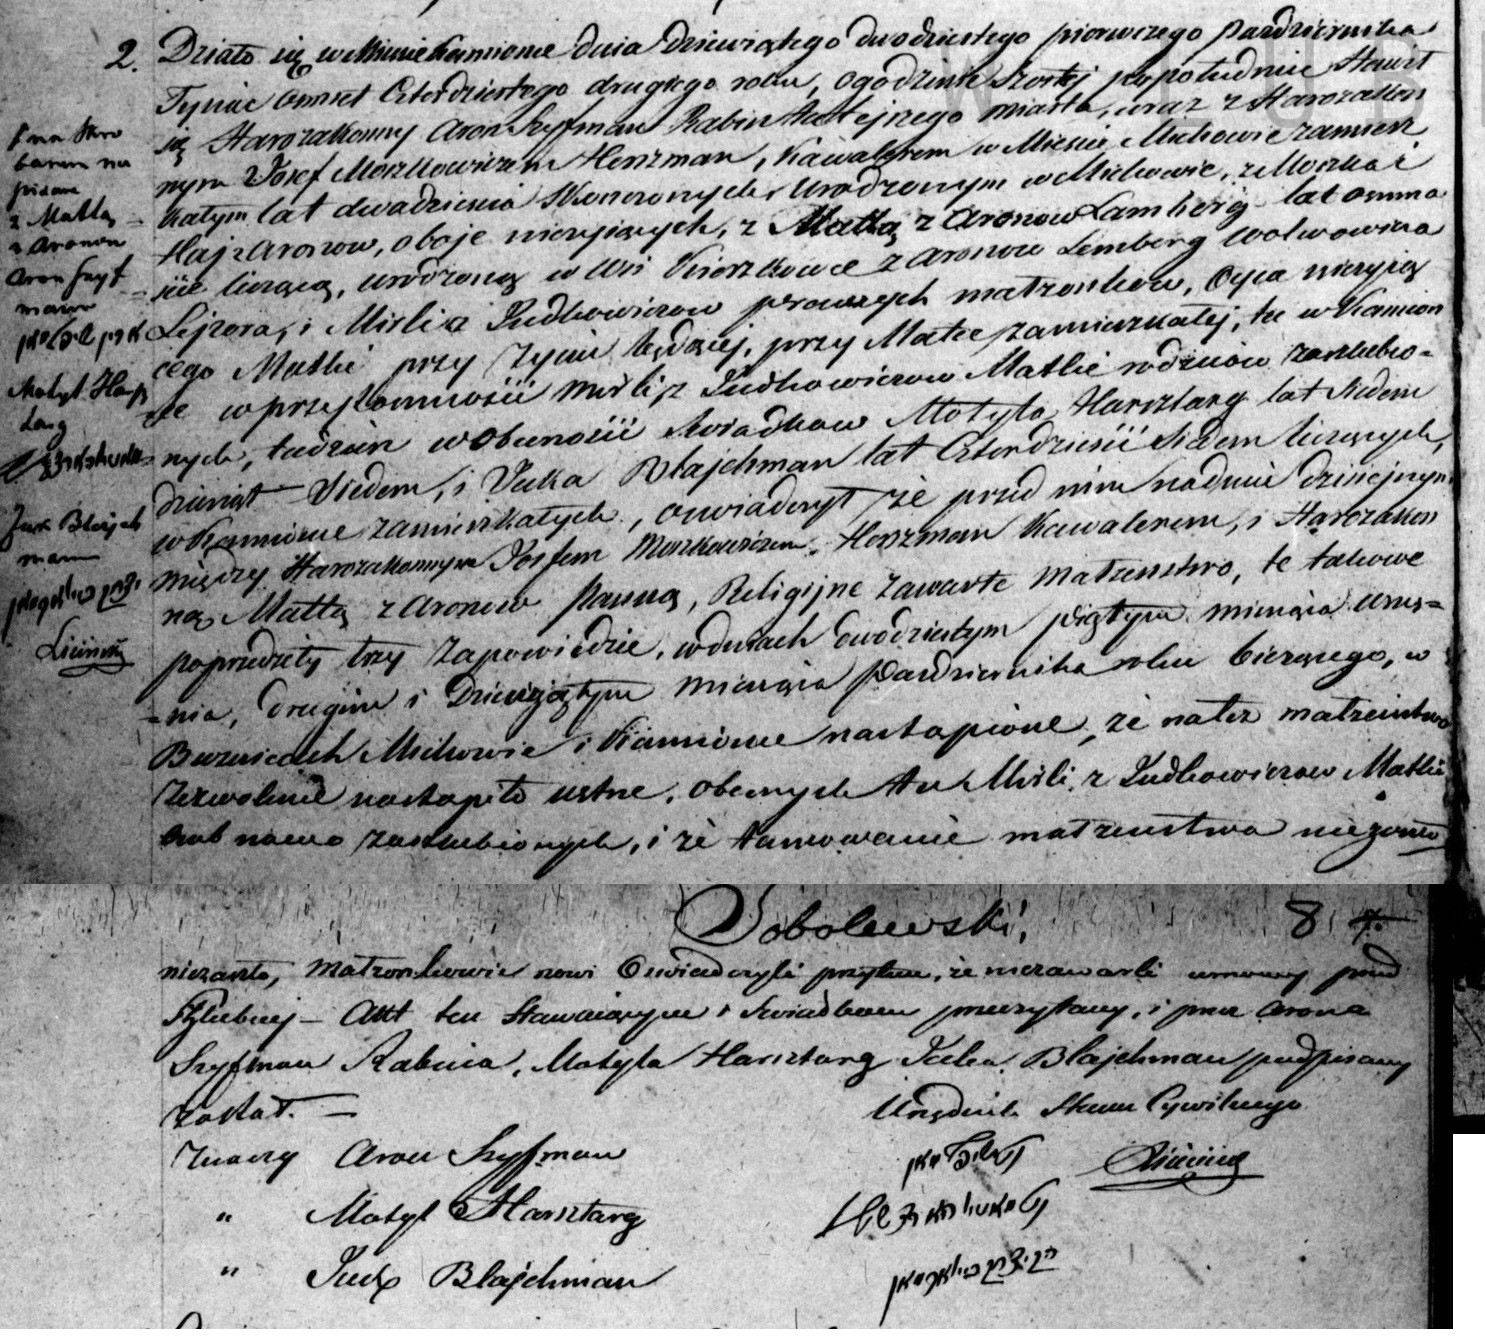 2. Działo się w Mieście Kamionce dnia dziewiątego dwudziestego pierwszego Pazdziernika
Tysiąc osmset Czterdziestego drugiego roku, o godzinie szostej popołudniu Stawił
się Starozakonny Aron Szyfman Rabin tutejszego miasta, wraz z Starozakon
nym Josef Moszkowiczem Henzman, Kawalerem w Mieście Michowie zamiesz
kałym lat dwadzieścia skonczonych, urodzonym w Michowie, z Moszka i
Haj z Aronow, oboje nieżyjących, z Matlą z Aronow Lamberg lat osmna
ście liczącą, urodzoną w Wsi z Aronow Lemberg wolwowicza
Lejzora, i Mirli z Judkowiczow pierwszych małzonkow, Oyca nieżyją
cego Matki przy życiu będącej, przy Matce zamieszkałej, tu w Kamion
ce w przytomności Mirli z Judkowiczow Matki rodziców zaslubio=
nych, tudzież w obecności świadkow Motyla Harsztarg lat siedem
dziesiąt siedem, i Jcka Blajchman lat Czterdzieści siedem liczących,
w Kamionce zamieszkałych, oswiadczył że przed nim na dniu dzisiejszym
między Starozakonnym Josfem Moszkowiczem Henzman Kawalerem, i Starozakon
ną Matlą z Aronow panną, Religijne zawarte małzenstwo, te takowe
poprzedziły trzy Zapowiedzie, w dniach dwudziestym piątym miesiąca wrzes=
=nia, drugim i Dziewiątym miesiąca Pazdziernika roku bieżącego, w
Buznicach Michowie i Kamionce nastąpione, że na też małzeństwo
zezwolenie nastąpiło ustne, obecnych tu Mirli z Judkowiczow Matki
osob nowo zaslubionych, i że tamowanie małzenstwa niezaszło
Sobolewski 8
niezaszło, Małzonkowie nowi Oswiadczyli przytem, że niezawarli umowy przed
szlubnej – Akt ten stawaiącym i swiadkom przeczytany, i przez Arona
Szyfman Rabina, Motyla Harsztarg Jcka Blajchman podpisany
został. —
Urzędnik Stanu Cywilnego
Znaczy Aron Szyfman
" Motyl Harsztarg
" Jcek Blajchman
z Matlą
z Aronow
Aron Szyf
man
Motyl Harsz
targ
Jcek Blajch
man